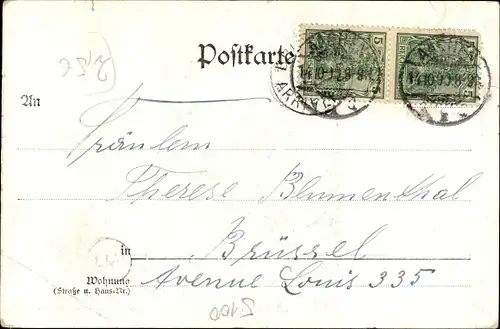 Postkarte
5 5
An
Fräulein
Therese Blumenthal
in
Brüssel
Wohnung
(Straße u. Haus-Nr.)
Avenue Louis 335
5100